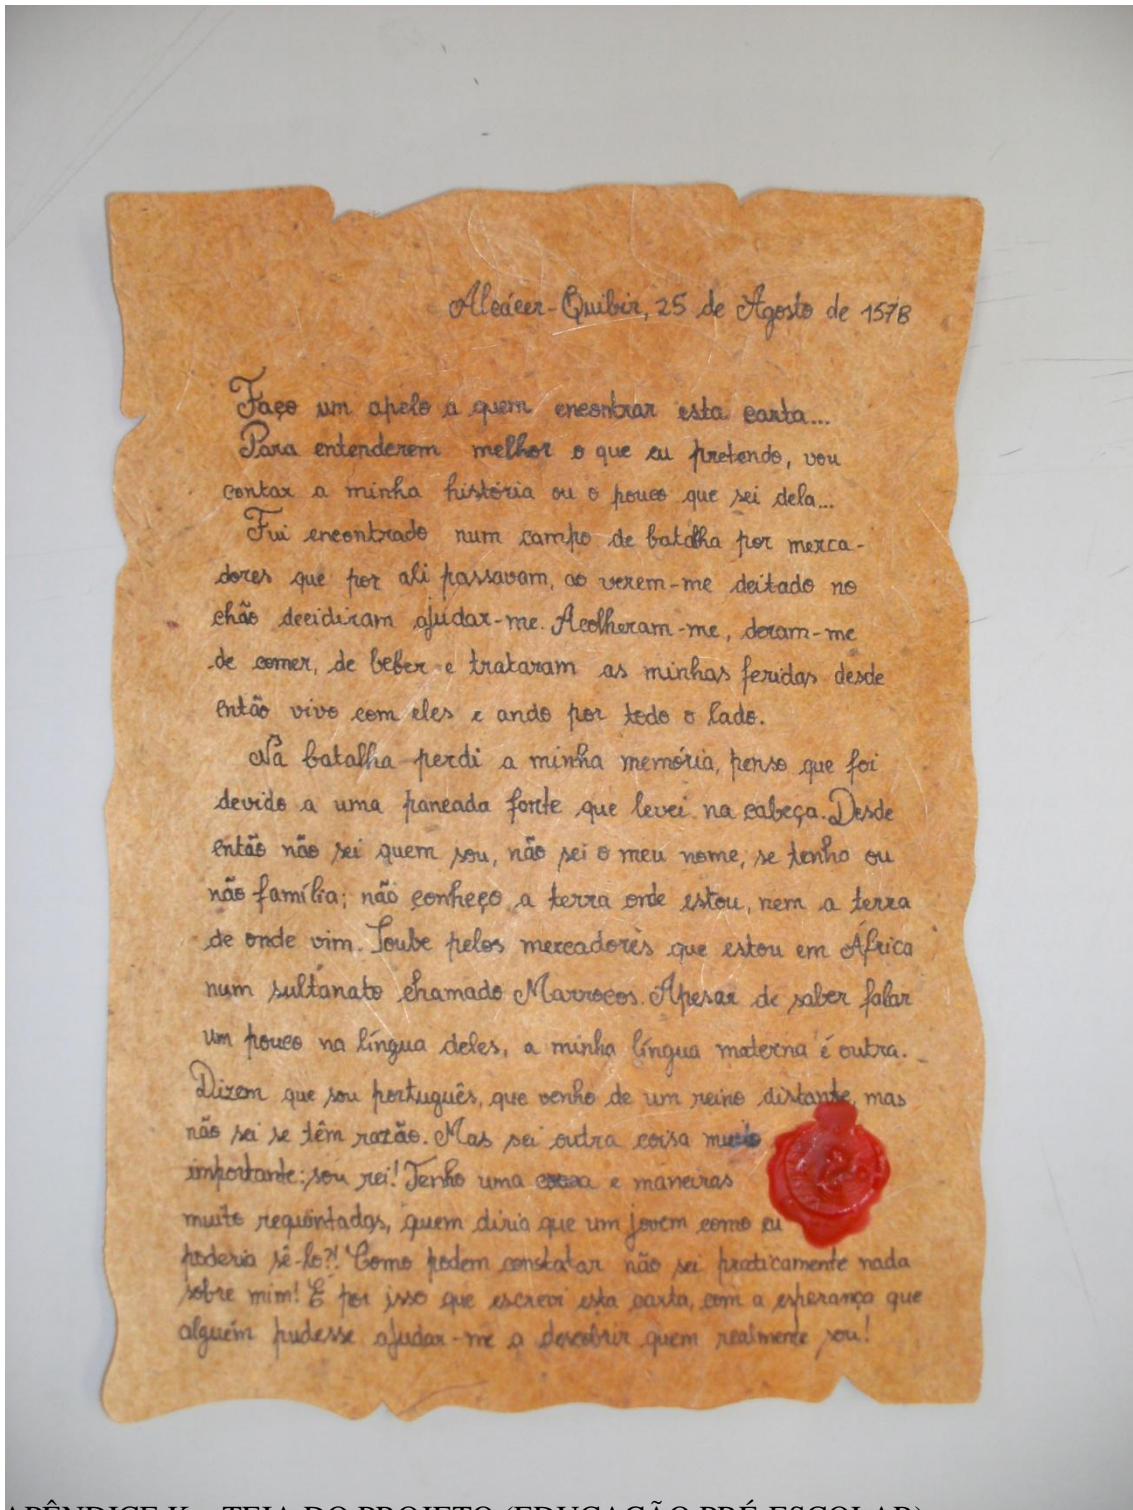 Alcácer-Quibir, 25 de Agosto de 1578
Faço um apelo a quem encontrar esta carta...
Para entenderem melhor o que eu pretendo, vou
contar a minha história ou o pouco que sei dela...
Fui encontrado num campo de batalha por merca-
dores que por ali passavam, ao verem-me deitado no
chão decidiram ajudar-me. Acolheram-me, deram-me
de comer, de beber e trataram as minhas feridas desde
então vivo com eles e ando por todo o lado.
Na batalha perdi a minha memória, penso que foi
devido a uma pancada forte que levei na cabeça. Desde
então não sei quem sou, não sei o meu nome, se tenho ou
não família; não conheço a terra onde estou, nem a terra
de onde vim. Soube pelos mercadores que estou em África
num sultanato chamado Marrocos. Apesar de saber falar
um pouco na língua deles, a minha língua materna é outra.
Dizem que sou português, que venho de um reino distante, mas
não sei se têm razão. Mas sei outra coisa muito
importante: sou rei! Tenho uma e maneiras
muito requintadas, quem diria que um jovem como eu
poderia sê-lo?! Como podem constatar não sei praticamente nada
sobre mim! É por isso que escrevi esta carta, com a esperança que
alguém pudesse ajudar-me a descobrir quem realmente sou!
APÊNDICE K – TEIA DO PROJETO (EDUCAÇÃO PRÉ-ESCOLAR)